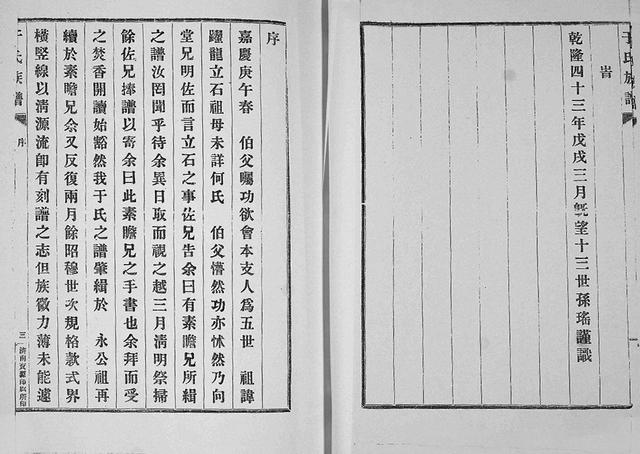 于氏族譜
旹
乾隆四十三年戊戌三月旣望十三世孫瑤謹識
序
嘉慶庚午春　伯父囑功欲會本支人爲五世　祖諱
躍龍立石祖母未詳何氏　伯父懵然功亦怵然乃向
堂兄明佐而言立石之事佐兄告余曰有素瞻兄所緝
之譜汝罔聞乎待余異日取而視之越三月淸明祭掃
餘佐兄捧譜以寄余曰此素瞻兄之手書也余拜而受
之焚香開讀始豁然我于氏之譜肇緝於　永公祖再
續於素瞻兄余又反復兩月餘昭穆世次規格款式界
橫竪線以淸源流卽有刻譜之志但族微力薄未能遽
于氏族譜
序
三
濟南
印刷所印